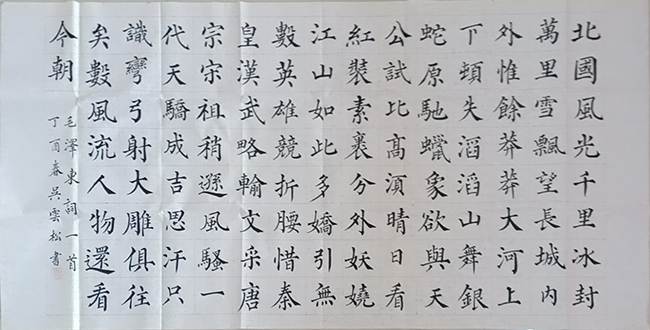 北國風光千里冰封
萬里雪飄望長城内
外惟餘莽莽大河上
下頓失滔滔山舞銀
蛇原馳蠟象欲與天
公試比高須晴日看
紅裝素裹分外妖嬈
江山如此多嬌引無
數英雄競折腰惜秦
皇漢武略輸文采唐
宗宋祖稍遜風騷一
代天驕成吉思汗只
識彎弓射大雕俱往
矣數風流人物還看
今朝
毛澤東詞一首
丁酉春吳雲松書